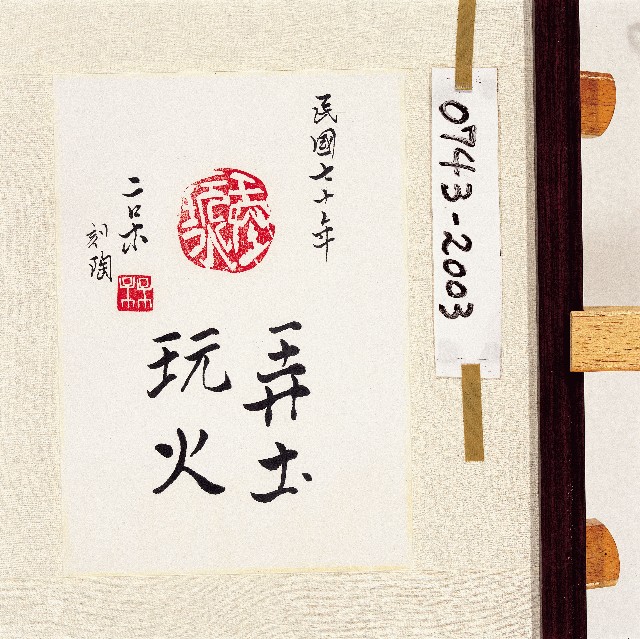 民國七十年
弄土
玩火
二呆
刻陶
0743-2003